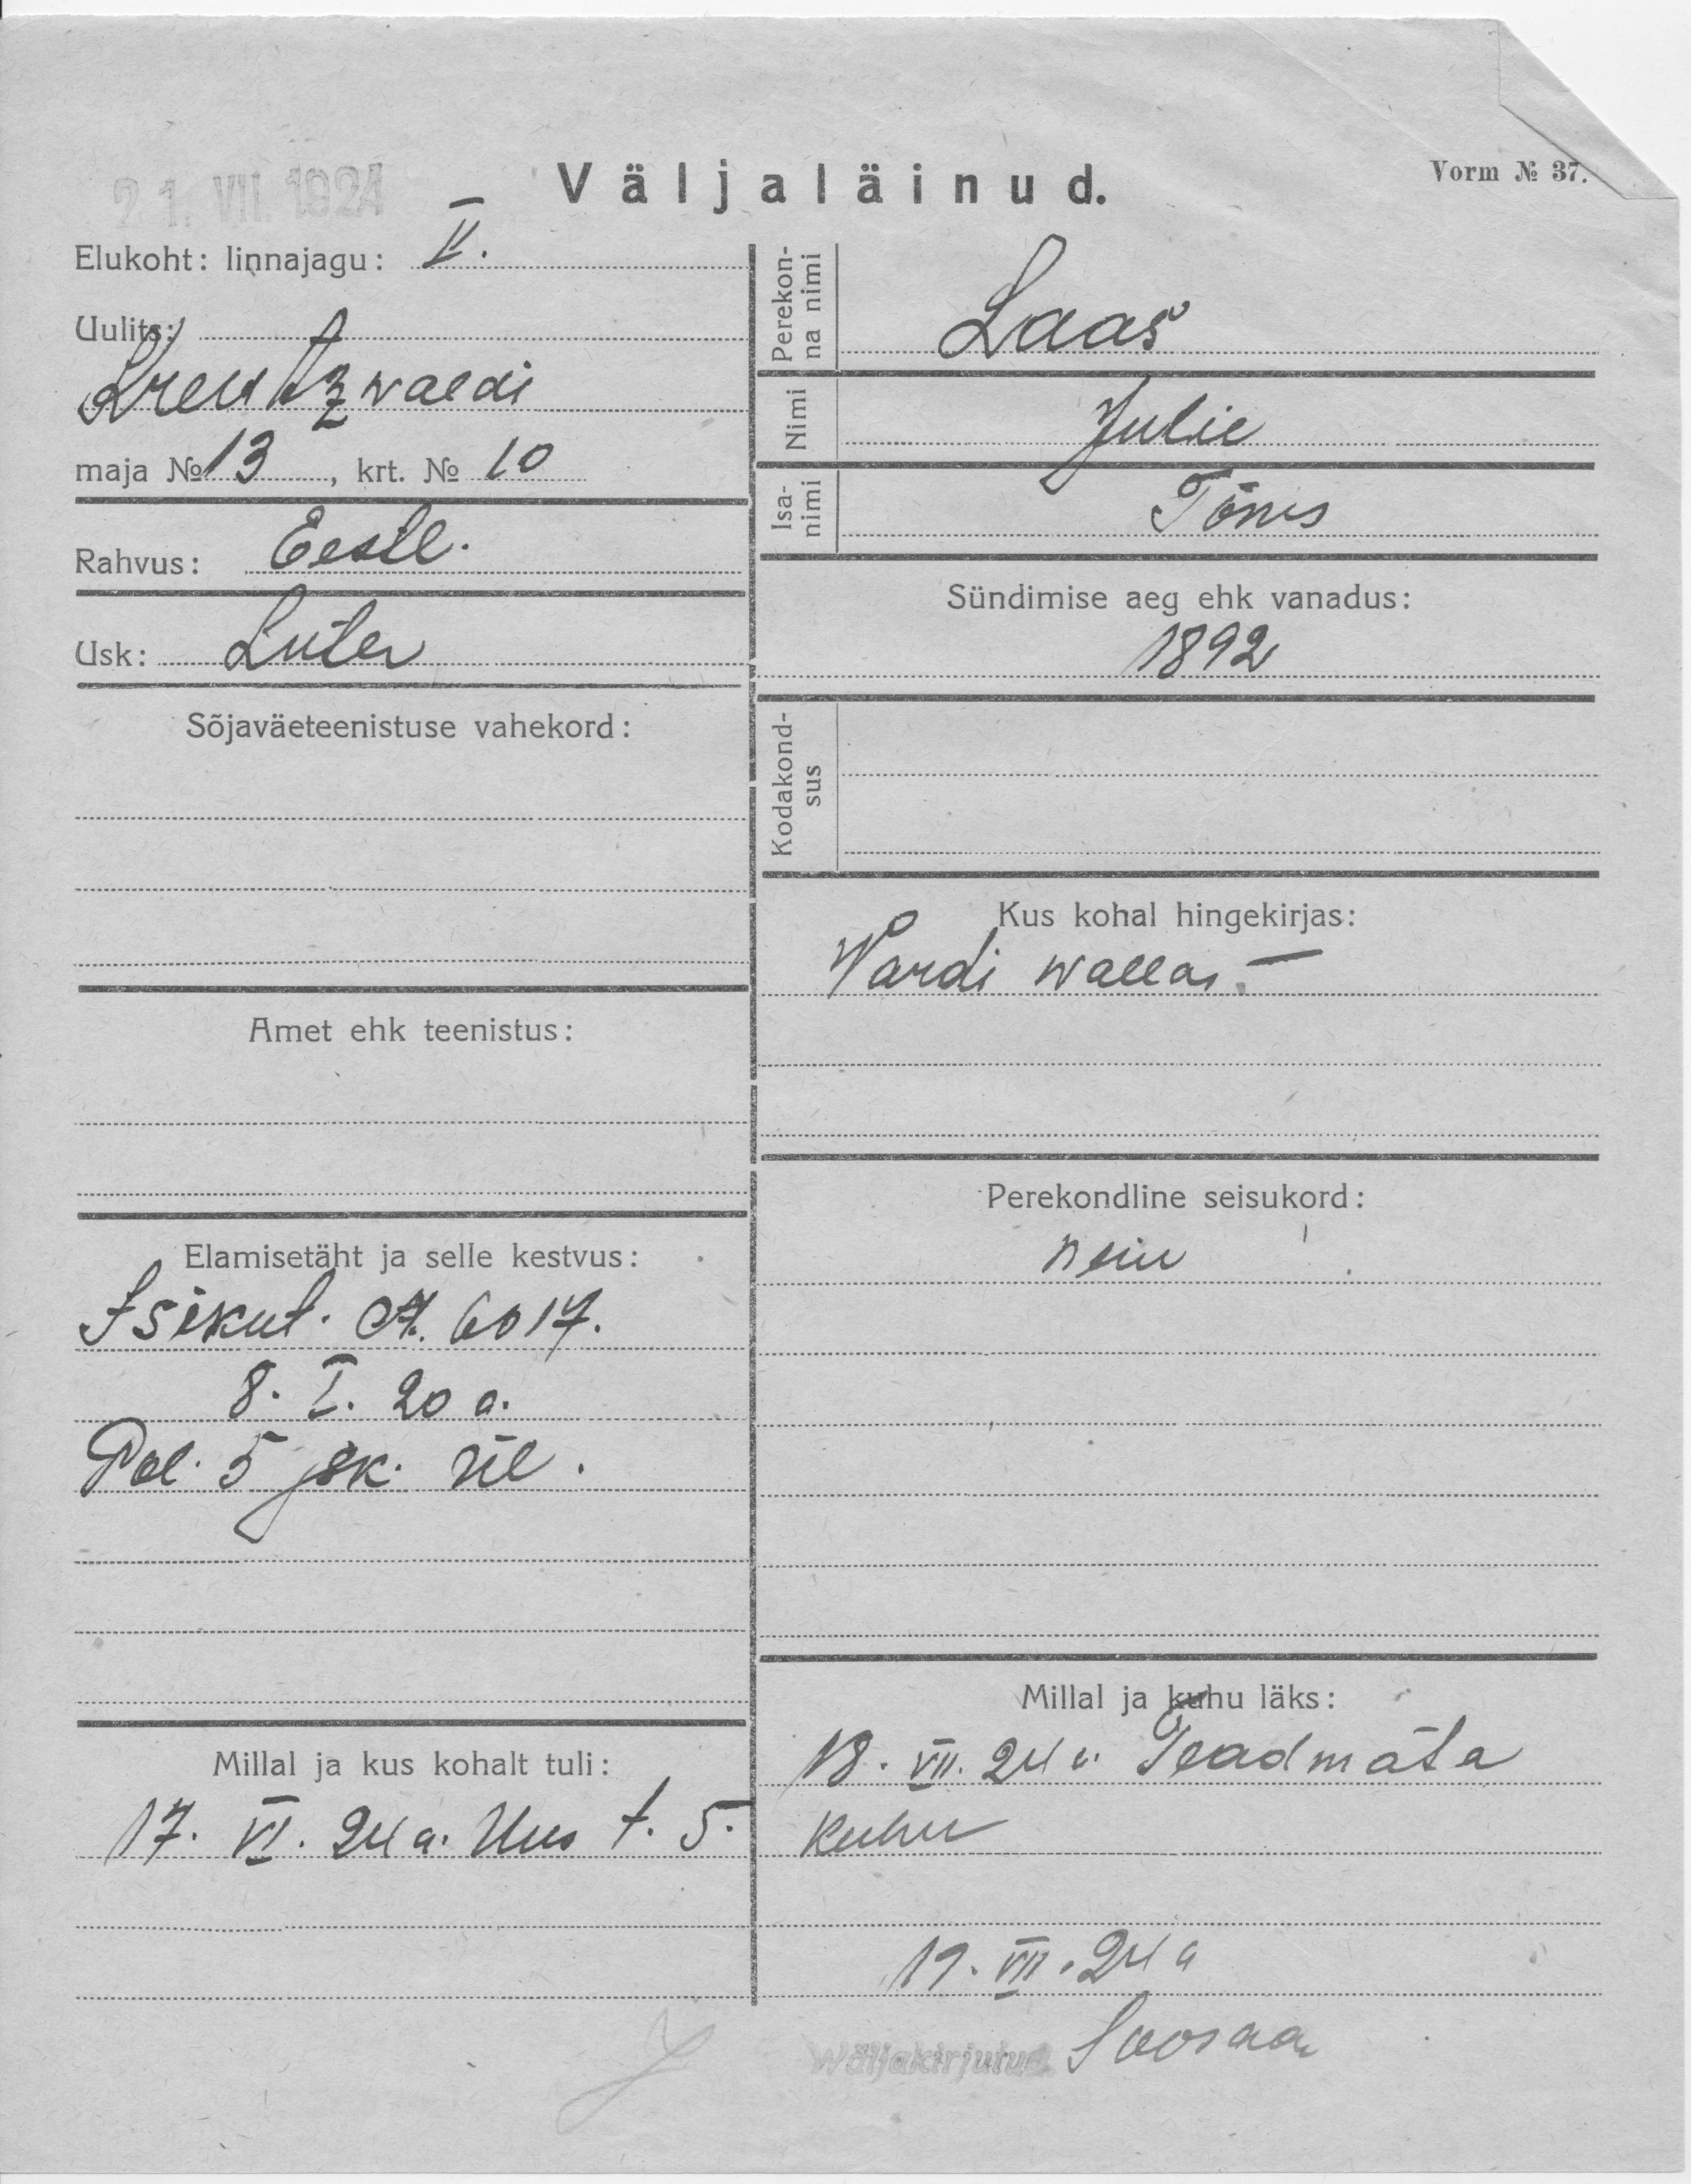 21. VII. 1924
Väljaläinud.
Vorm № 37.
Elukoht: linnajagu: V.
Uulits:
Kreutzwaldi
maja № 13, krt. № 10
Rahvus: Eestl.
Usk: Luter
Sõjaväeteenistuse vahekord:
Amet ehk teenistus:
Elamisetäht ja selle kestvus:
Isikut. A. 6017.
8. I. 20 a.
Pol. 5 jsk. ül.
Millal ja kus kohalt tuli:
17. VI. 24 a. Uus t. 5.
Perekon-
na nimi
Laas
Nimi
Julie
Isa-
nimi
Tõnis
Sündimise aeg ehk vanadus:
1892
Kodakond-
sus
Kus kohal hingekirjas:
Wardi wallas.
Perekondline seisukord:
neiu
Millal ja kuhu läks:
18. VII. 24 a. Teadmata
kuhu
19. VII. 24 a
Wäljakirjutud